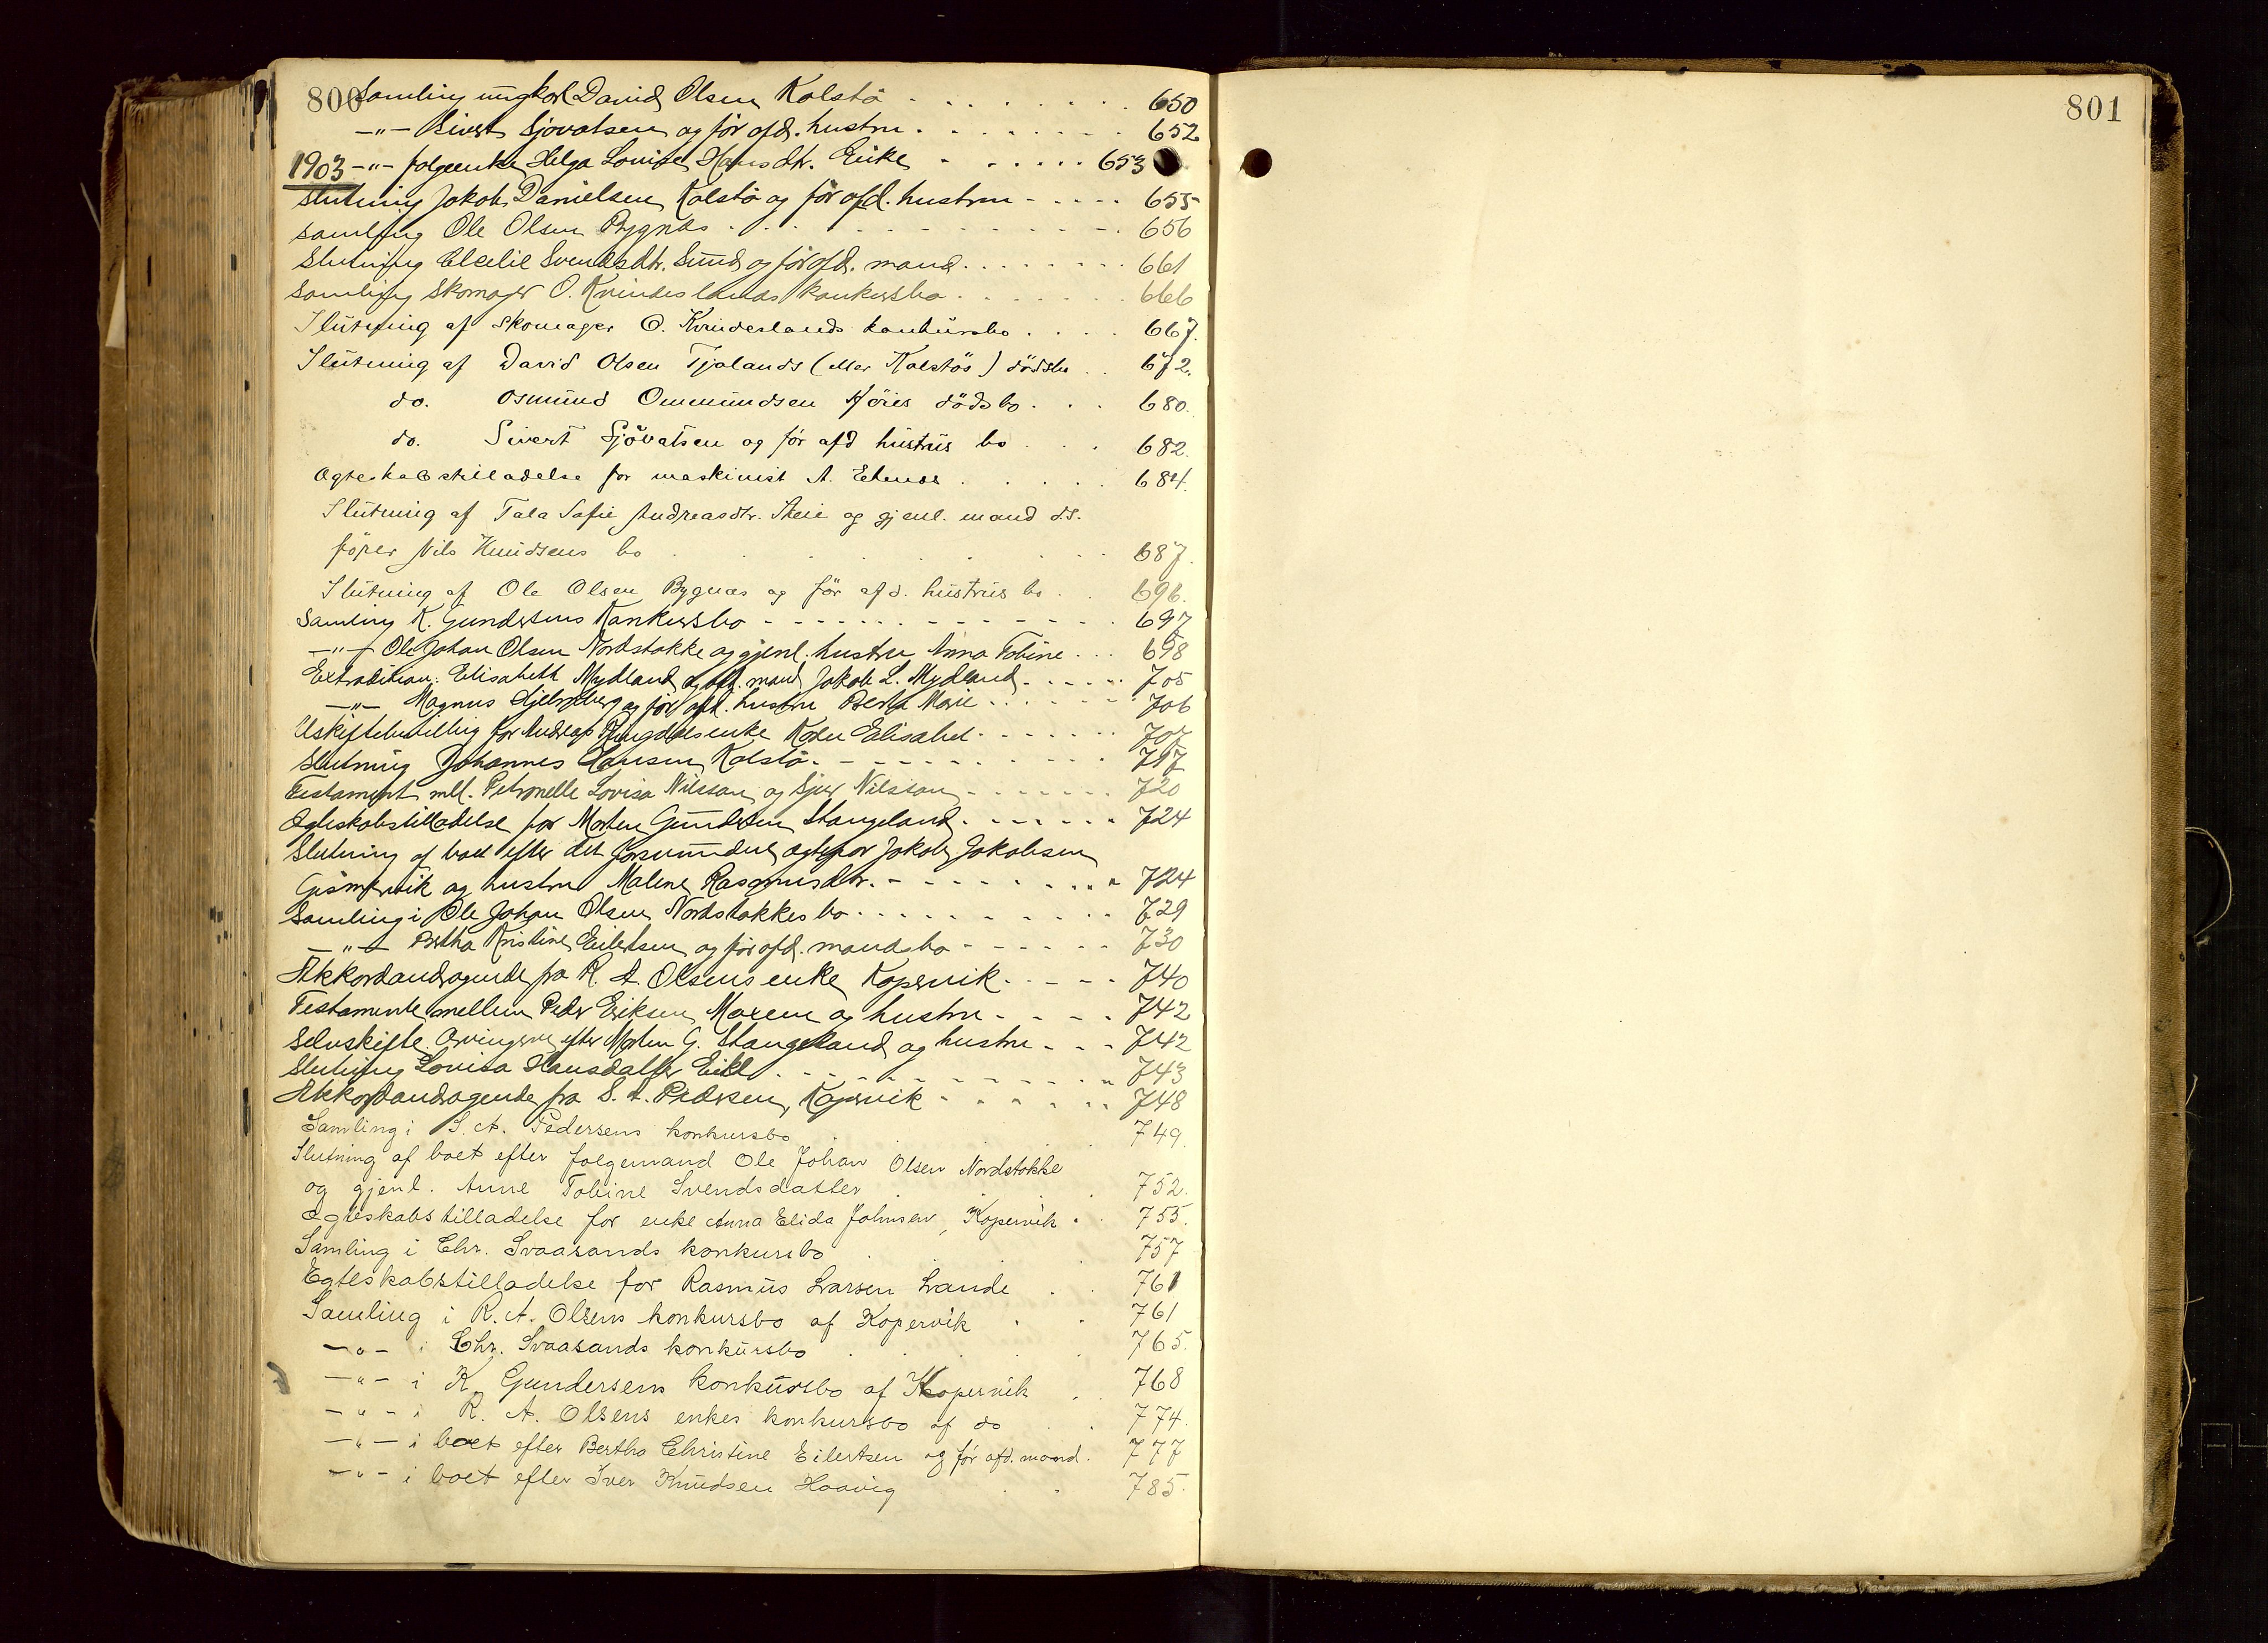 800 Samling ungkarl David Olsen Kalstö 650
—"— Sivert Sjovatsen og før afd. hustru 652
1903 —"— folgeenke Helga Lovise Hansdtr. Eike 653
Slutning Jakob Danielsen Kalstö og før afd. hustru 655
Samling Ole Olsen Bygnes 656
Slutning Cecilie Svendsdtr. Sund og før afd. mand 661
Samling Skomager O. Kvindeslands konkursbo 666
Slutning af skomager O. Kvindeslands konkursbo 667.
Slutning af David Olsen Tjølands (eller Kalstös) dödsbo 672.
do. Osmund Ommundsen dödsbo 680.
do. Sivert Sjövatsen og før afd hustrus bo 682.
Ægteskabstilladelse for maskinist A. 684.
Slutning af Tala Sofie Andreasdtr. Steie og gjenl. mand d.s.
fører Nils Knudsens bo 687.
Slutning af Ole Olsen Bygnæs og før afd. hustrus bo 696.
Samling K. Gundersens Konkursbo 697
—"— Ole Johan Olsen Nordstokke og gjenl. hustru Anna Tobine 698
Extradition: Elisabeth Mydland og afd. mand Jakob L. Mydland 705
—"— Magnus og før afd. hustru Berta Marie 706
Uskiftebevilling for Andreas enke Karen Elisabet 707
Slutning Johannes Hansen Kalstö 717
Testament mll. Petronelle Lovisa Nilsson og Sjur Nilsson 720
Ægteskabstilladelse for Morten Gundersen Stangeland 724
Slutning af boet efter det forsvundne ægtepar Jakob Jakobsen
Gismervik og hustru Malene Rasmusdtr. 724
Samling i Ole Johan Olsen Nordstokkes bo 729
—"— Bertha Kristine Eilertsen og før afd. mands bo 730
Akkordandragende fra R. A. Olsens enke Kopervik 740
Testamente mellem Peder Eriksen Mæren og hustru 742
Selvskifte. Arvingerne efter Morten G. Stangeland og hustru 742
Slutning Lovisa Hansdatter Eike 743
Akkordandragende fra S. A. Pedersen, Kopervik 748
Samling i S. A. Pedersens konkursbo 749.
Slutning af boet efter følgemand Ole Johan Olsen Nordstokke
og gjenl. Anne Tobine Svendsdatter 752.
Ægteskabstilladelse for enke Anna Elida Johnsen, Kopervik 755.
Samling i Chr. Svaasands konkursbo 757
Egteskabstilladelse for Rasmus Larsen Lande 761
Samling i R. A. Olsens konkursbo af Kopervik 761
—"— i Chr. Svaasands konkursbo 765.
—"— i K. Gundersens konkursbo af Kopervik 768
—"— i R. A. Olsens enkes konkursbo af do 774.
—"— i boet efter Bertha Christine Eilertsen og før afd. mand. 777
—"— i boet efter Iver Knudsen Haavig 785.
801